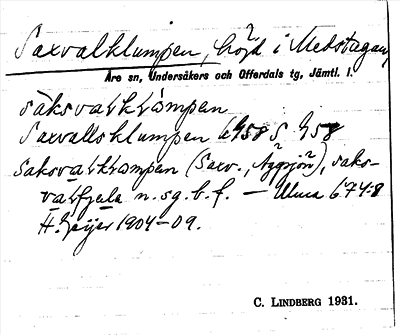 Saxvalklumpen, höjd i Medstugan,
Åre sn, Undersåkers och Offerdals tg, Jämtl. l.
sàksvaḷkḷómpen
Saxvallsklumpen
saksvaḷkḷompen (Saxv., saks-
vaḷfjela n. sg. b. f. — Ulma 674:8
H. Geijer 1904–09.
C. LINDBERG 1931.